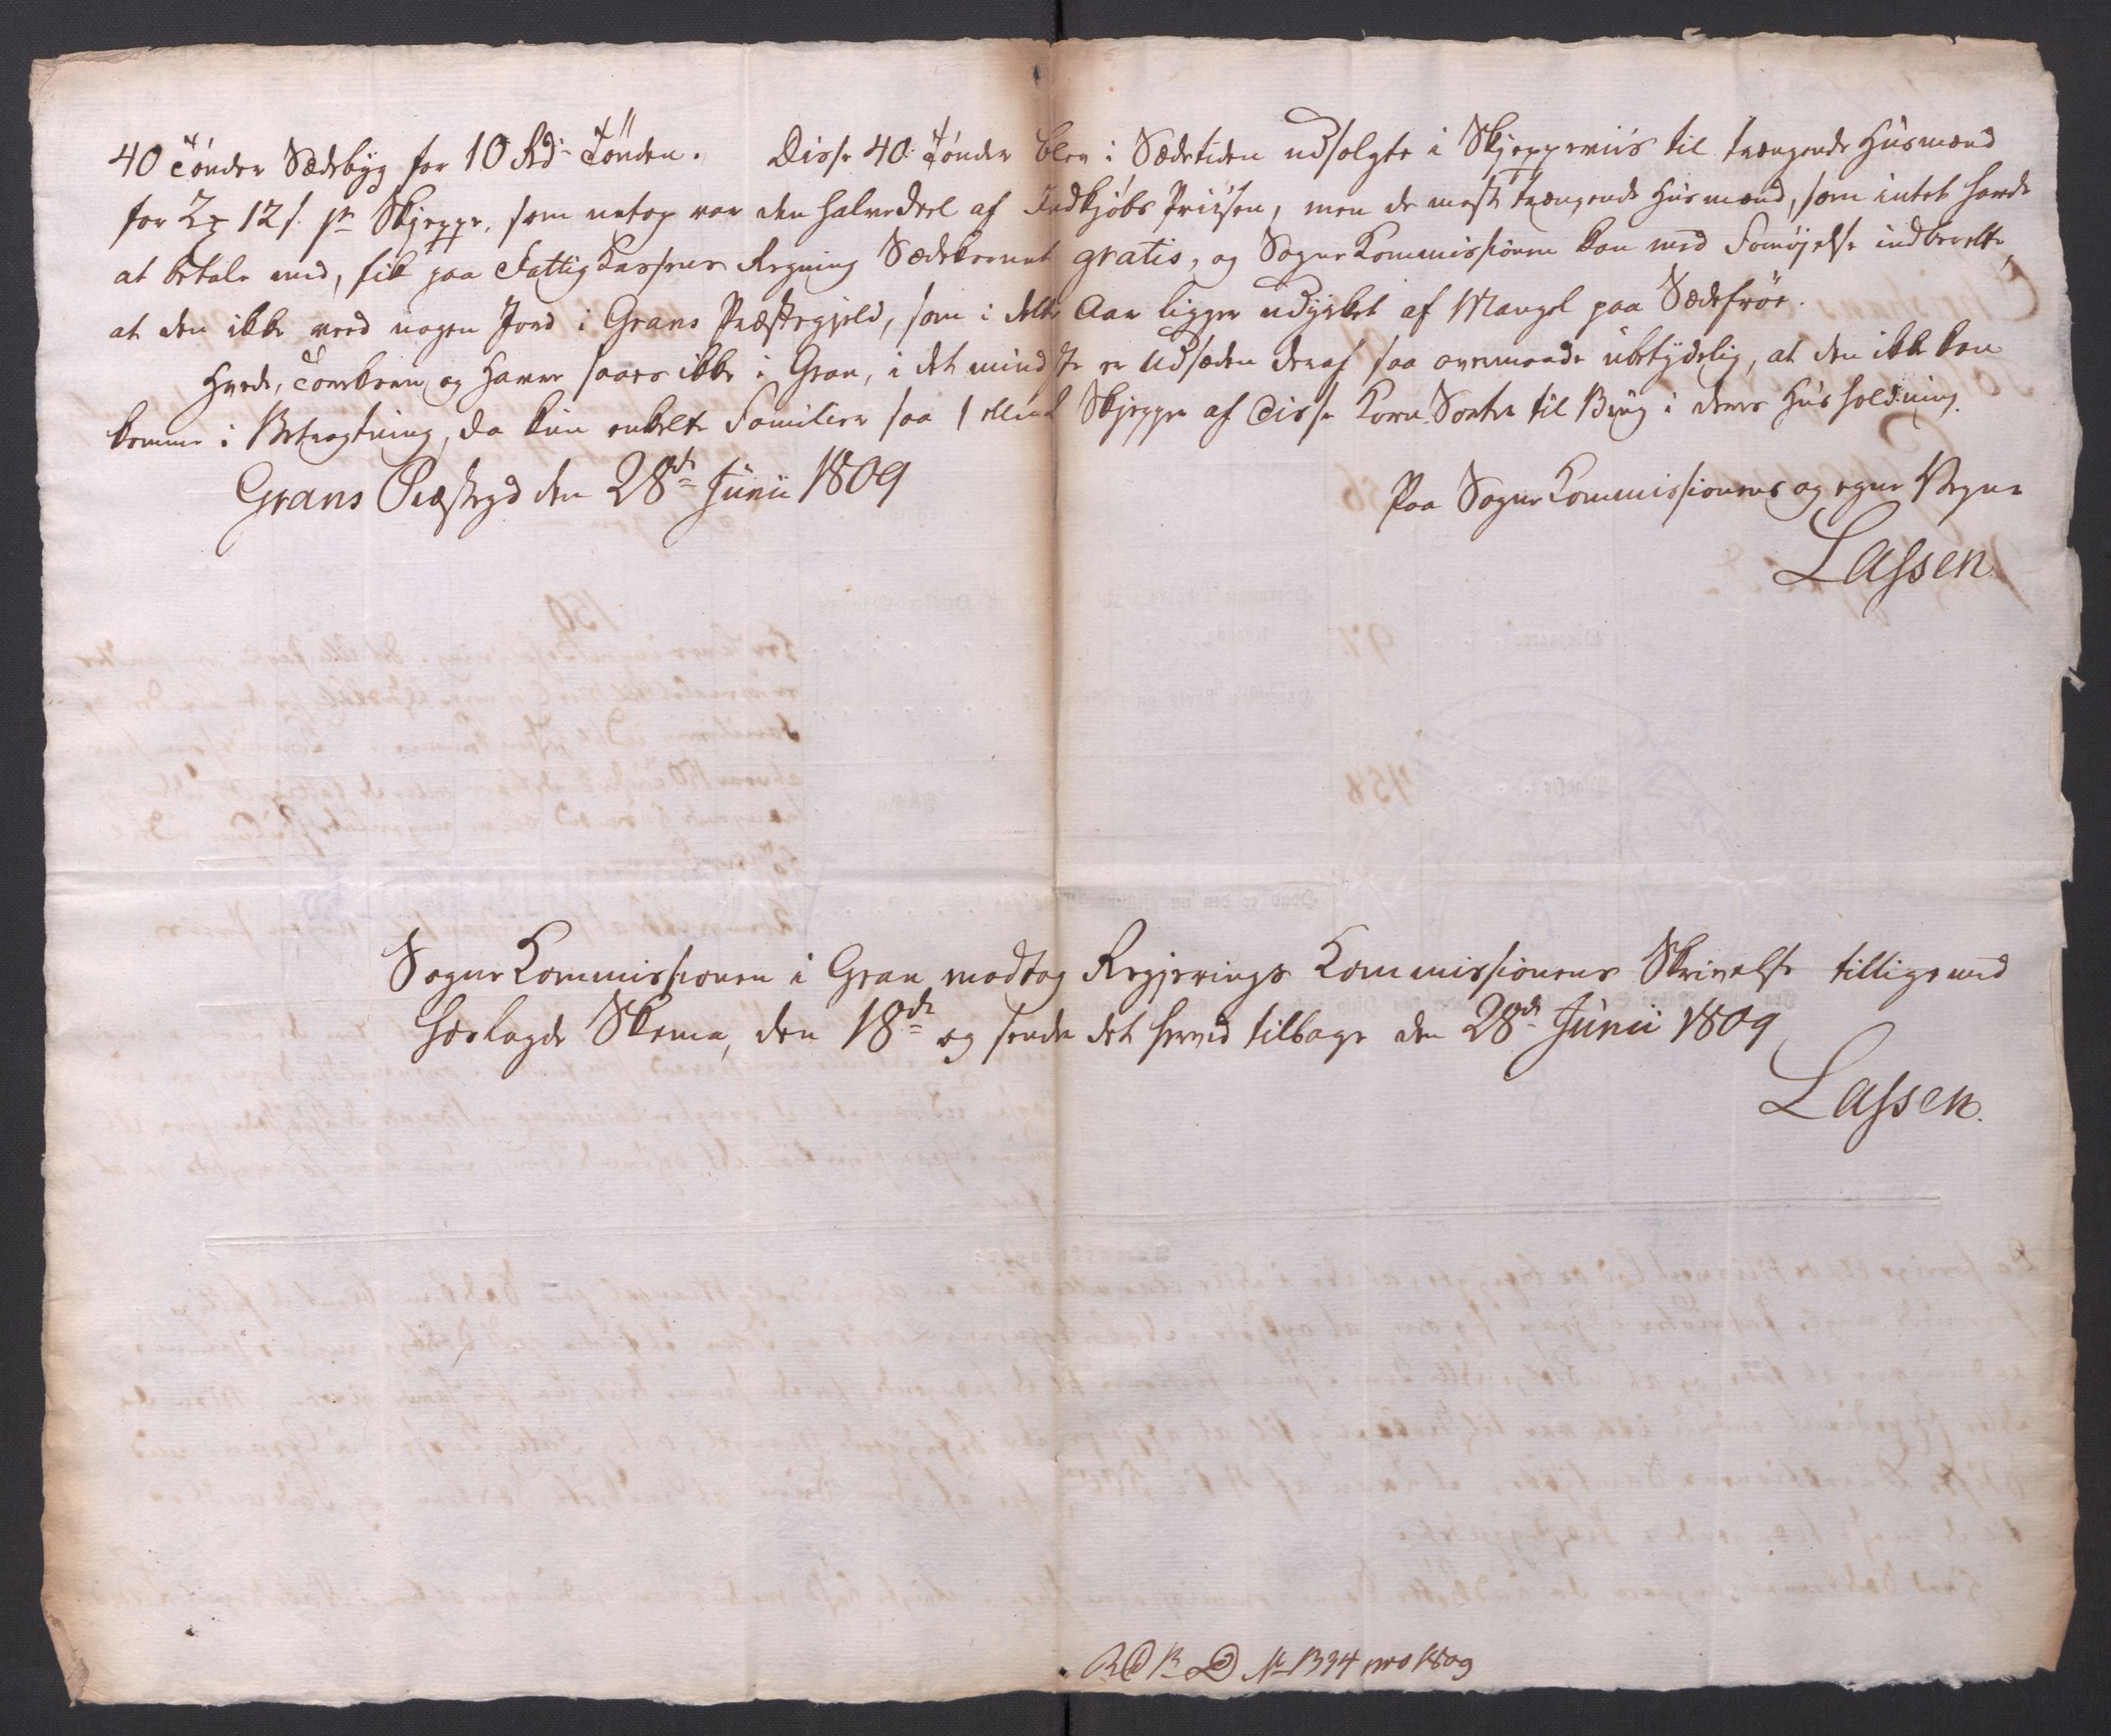 40 Tønder Sædebyg for 10 Rd Tønden. Disse 40 Tønder blev i Sædetiden udsolgte i Skjeppeviis til trængende Huusmænd
for 2 12 s. pr Skjeppe, som netop var den halvedeel af Indkjøbs Priisen, men de mest trængende Huusmænd, som intet havde
at betale med, fik paa Fattig Kassens Regning Sædekornet gratis, og Sogne Kommissionen kan med Fornøjelse indberette,
at den ikke veed nogen Jord i Grans Præstegjeld, som i dette Aar ligger udyrket af Mangel paa Sædefrøe.
Hvede, og Havre saaes ikke i Gran, i det mindste er Udsæden deraf saa overmaade ubetydelig, at den ikke kan
komme i Betragtning, da kun enkelte Familier saa 1 eller 2 Skjepper af disse Korn Sorter til Brug i deres Huusholdning.
Grans Præstegd den 28de Junii 1809
Paa Sogne Kommissionens og egne Vegne
Lassen.
Sogne Kommissionen i Gran modtog Regjerings Kommissionens Skrivelse tilligemed
hoslagde Skema, den 18de og sender det herved tilbage den 28de Junii 1809
Lassen.
No 1394 pro 1809